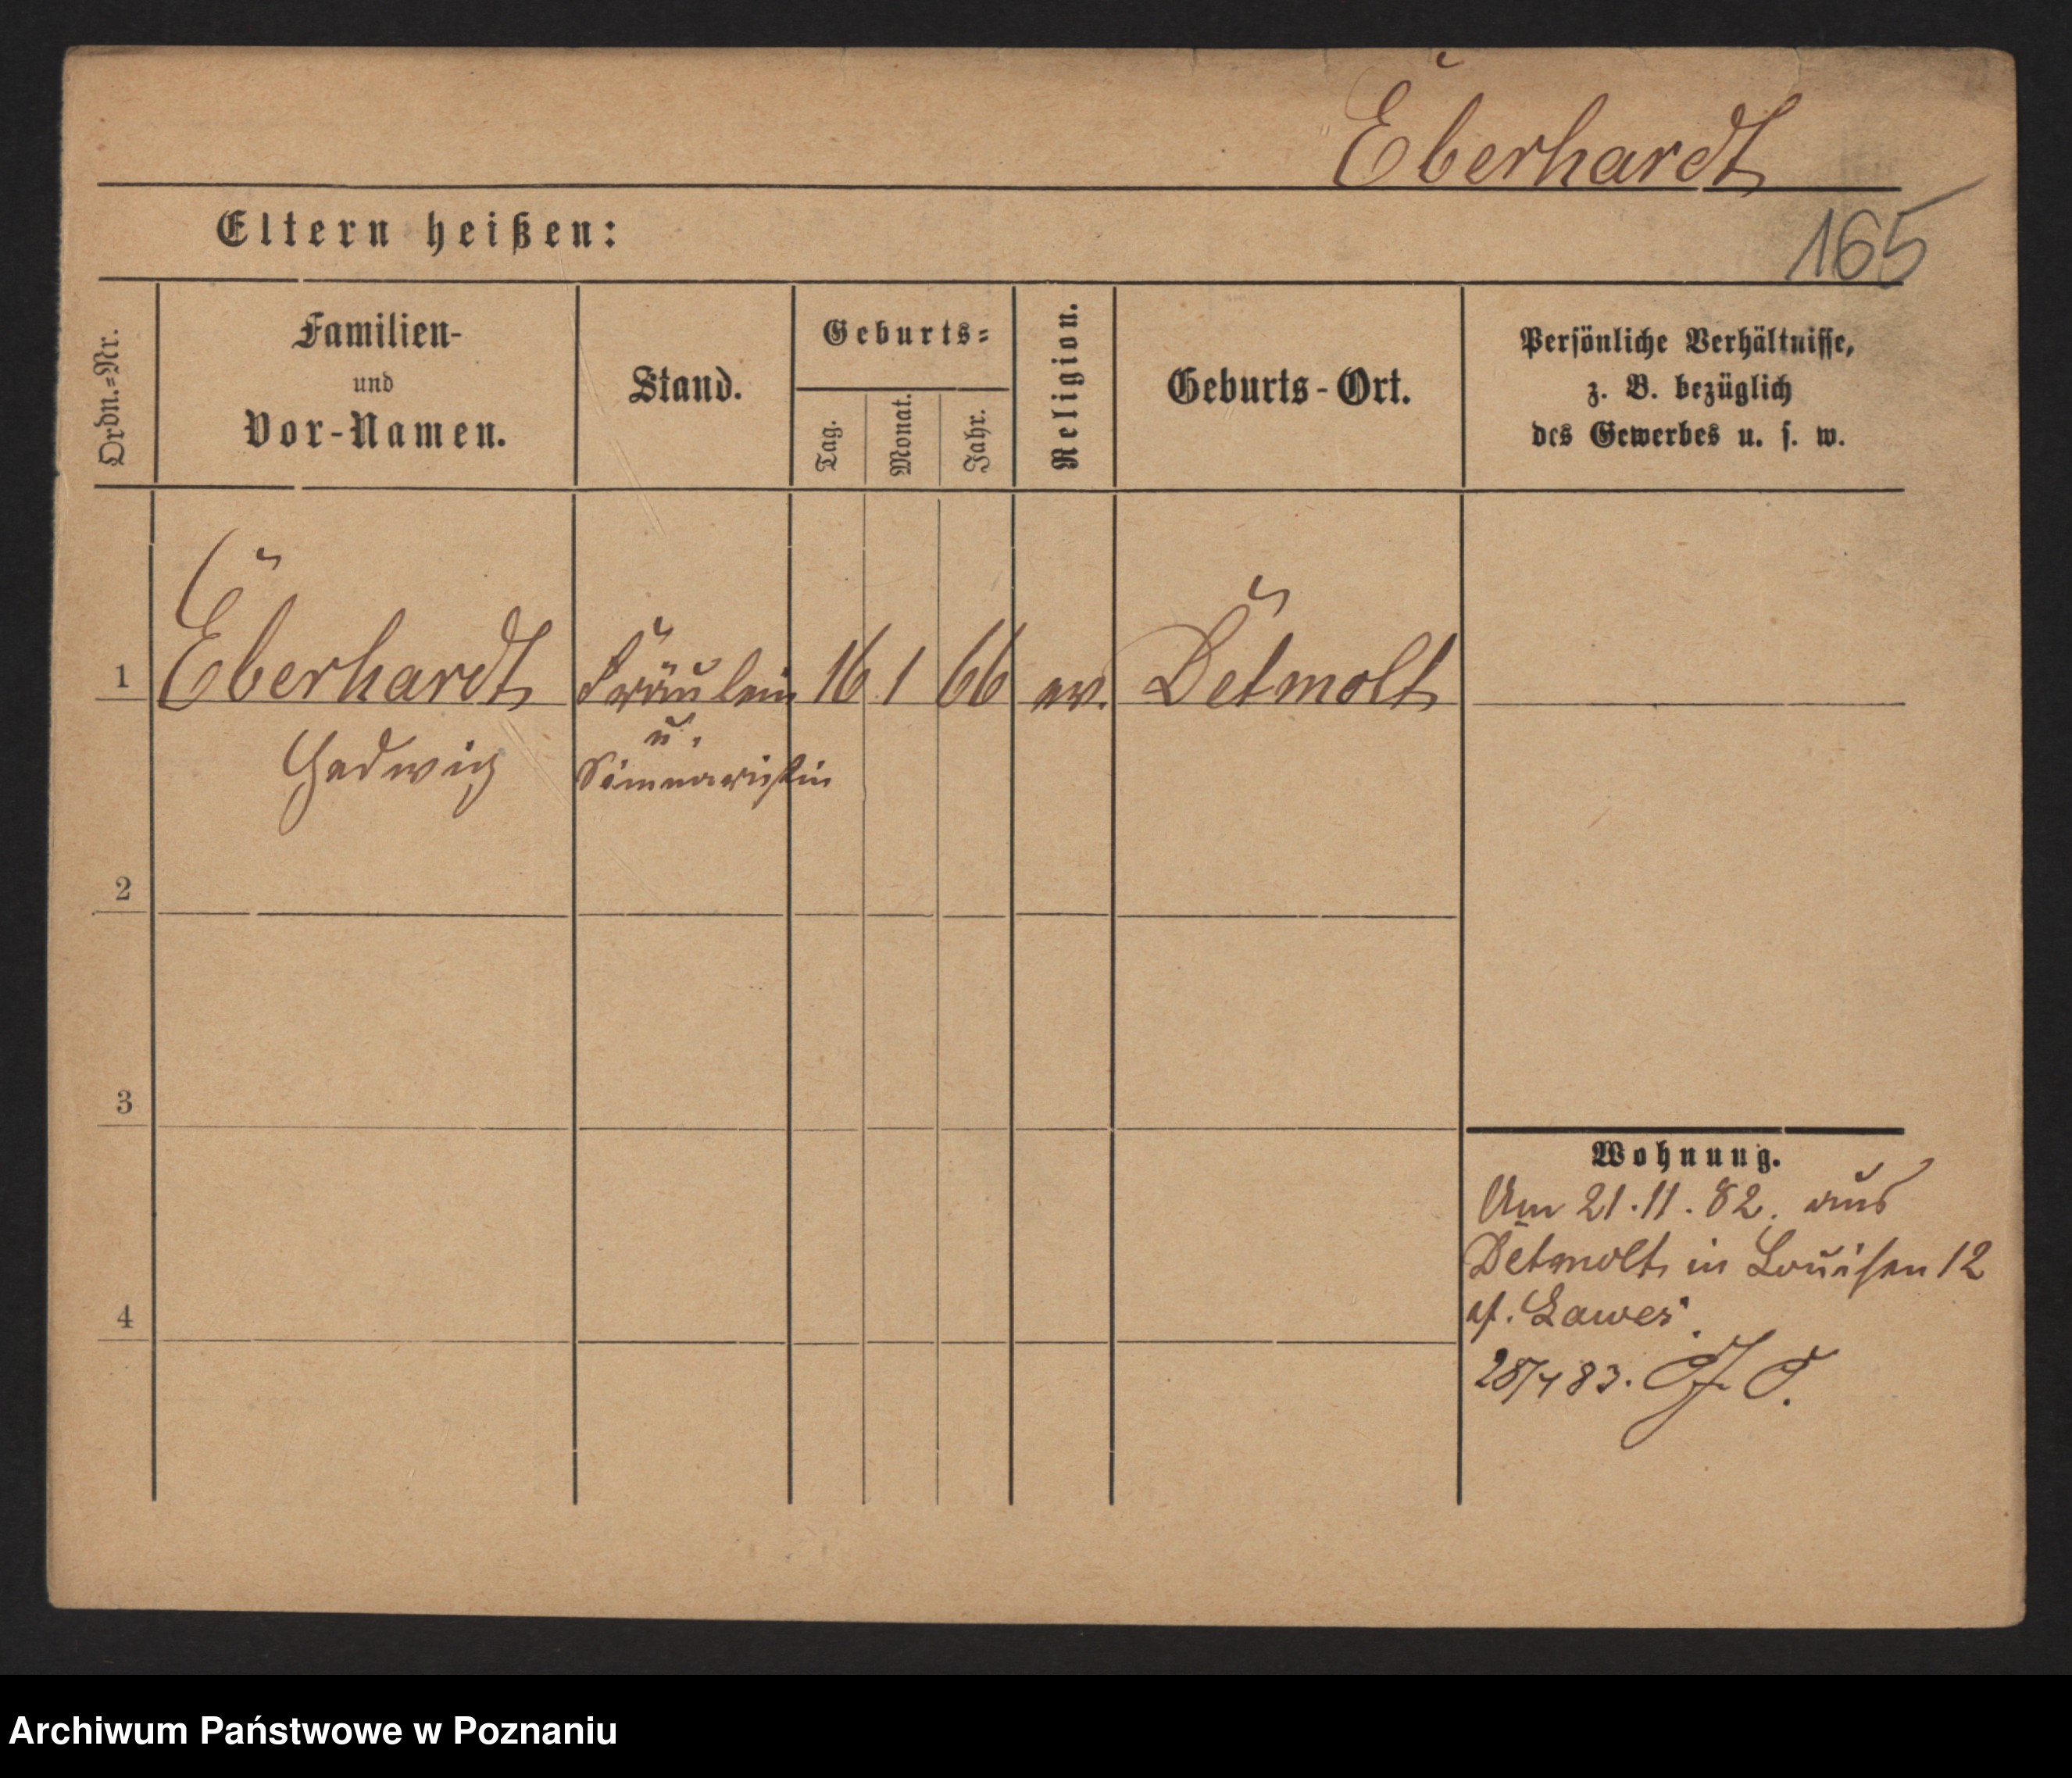 Eberhardt
165
Eltern heißen:
Ordn.=Nr.
Familien-
und
Vor-Namen.
Stand.
Geburts=
Tag.
Monat.
Jahr.
Religion.
Geburts-Ort.
Persönliche Verhältnisse,
z. B. bezüglich
des Gewerbes u. s. w.
1 Eberhardt Fräulein 16 1 66 ev. Detmolt
u.
Hedwig Seminaristin
2
3
4
Wohnung.
Am 21.11.82. aus
Detmolt in Louisen 12
Lawes
83.
Archiwum Państwowe w Poznaniu